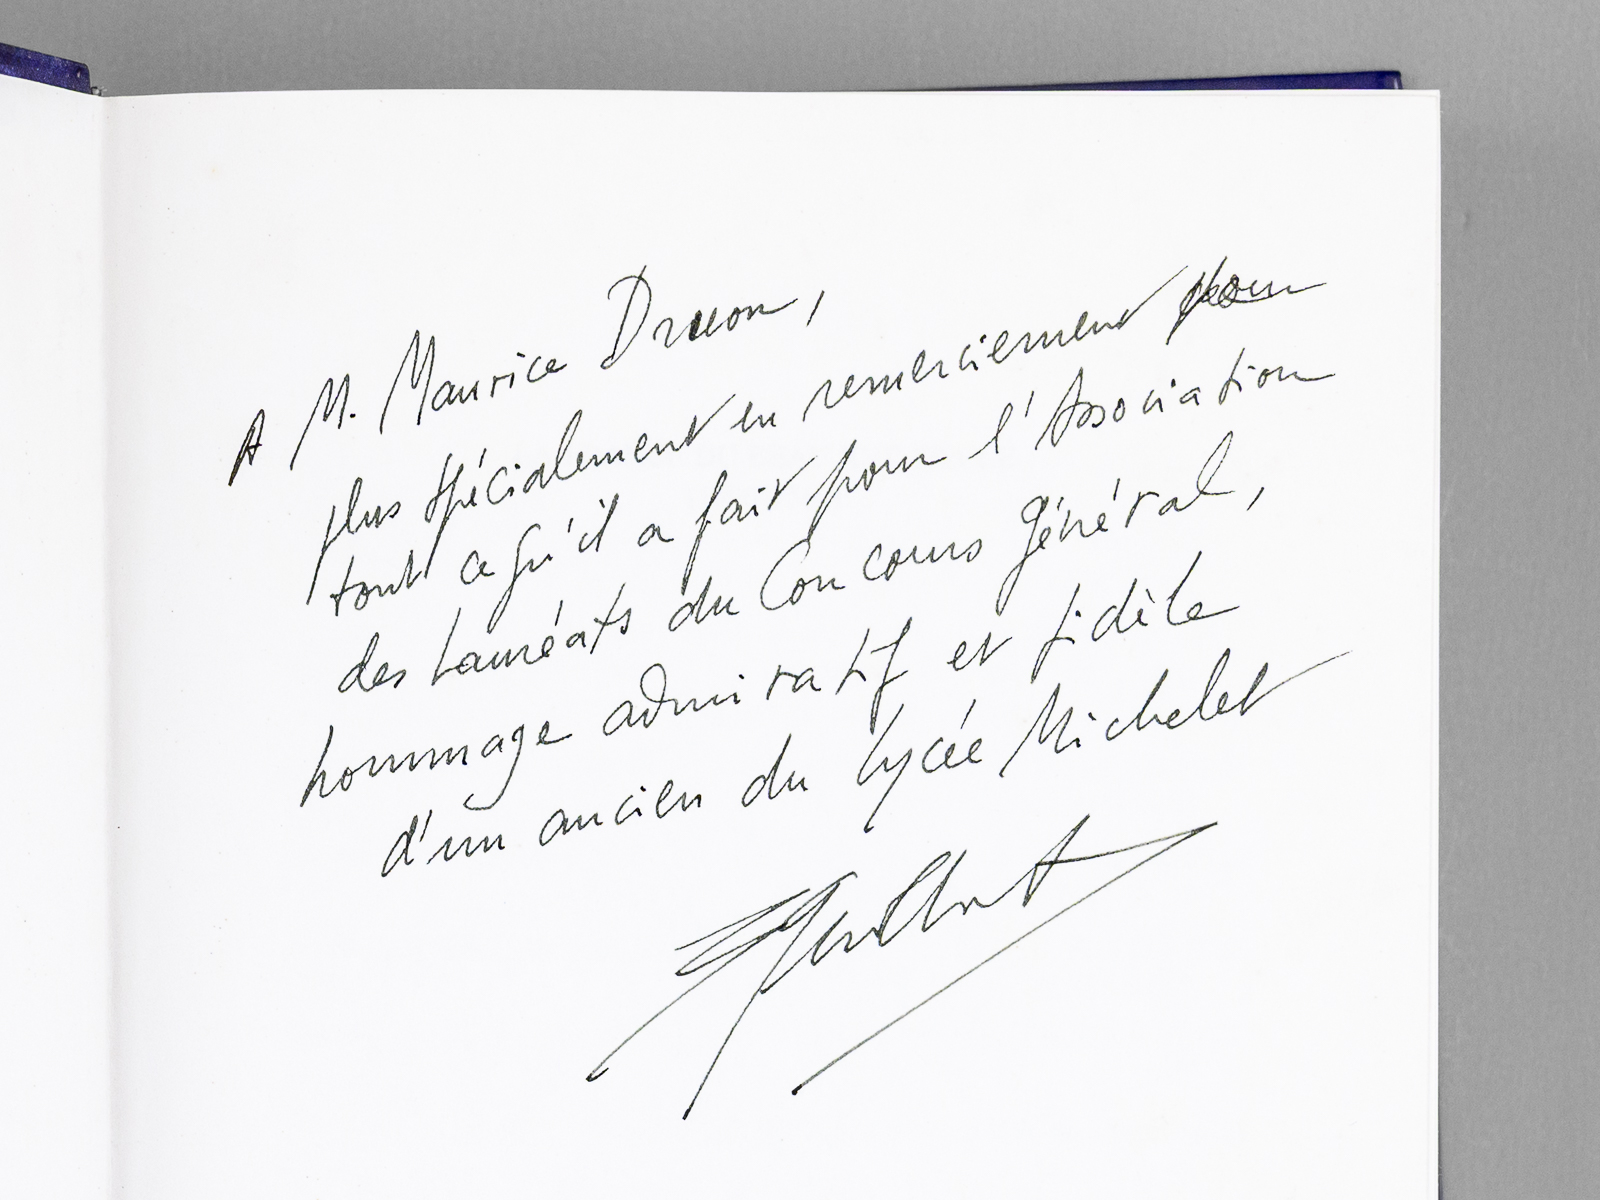 A M. Maurice Druon,
plus spécialement en remerciement pour
tout ce qu'il a fait pour l'Association
des Lauréats du Concours Général,
hommage admiratif et fidèle
d'un ancien du Lycée Michelet